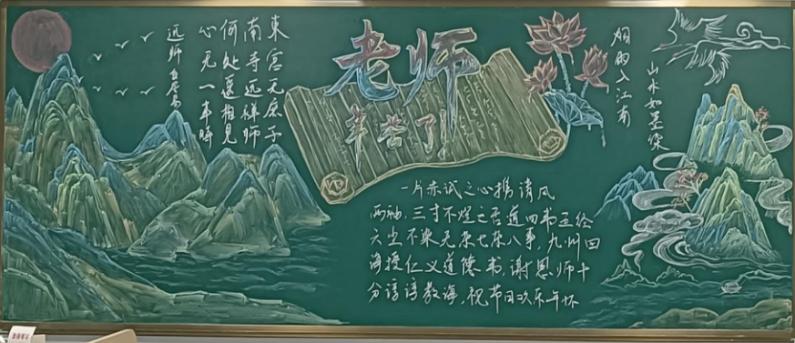 東宫无庶子
南寺远禅师
何处遥相见
心无一事时
远师 白居易
老师
辛苦了
烟雨入江南
山水如墨染
一片赤试之心携清风
两袖,三寸不烂之舌道四书五经
六尘不染无杂七杂八事,九州四
海授仁义道德书,谢恩师十
分谆谆教诲,祝节日欢乐开怀